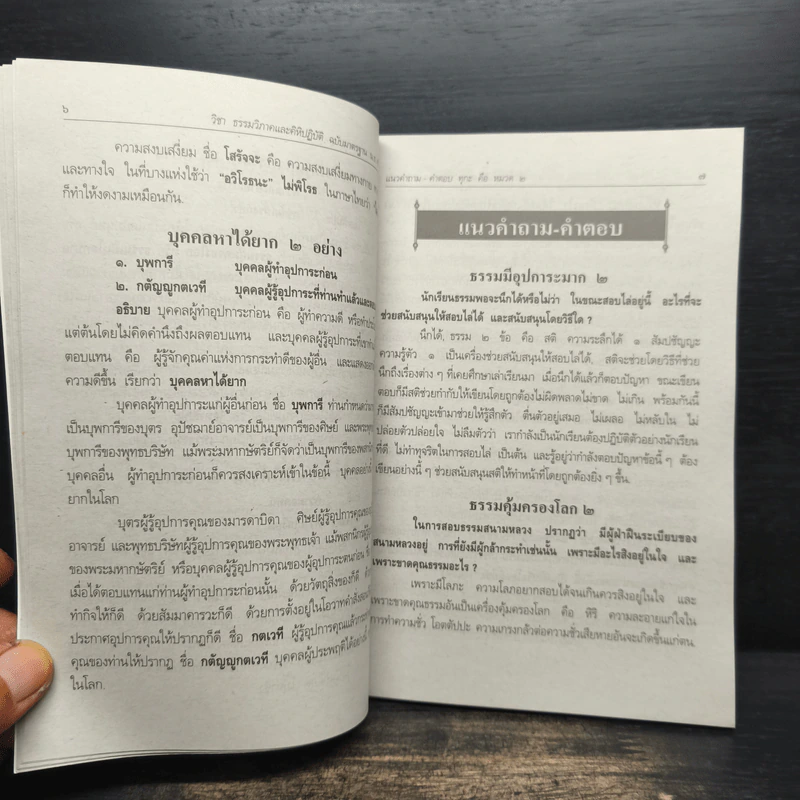 ๖
วิชา ธรรมวิภาคและคิหิปฏิบัติ ฉบับมาตรฐาน
ความสงบเสงี่ยม ชื่อ โสรัจจะ คือ ความสงบเสงี่ยมทางกาย
และทางใจ ในที่บางแห่งใช้ว่า “อวิโรธนะ” ไม่พิโรธ ในภาษาไทยว่า
ก็ทำให้งดงามเหมือนกัน.
บุคคลหาได้ยาก ๒ อย่าง
๑. บุพการี บุคคลผู้ทำอุปการะก่อน
๒. กตัญญูกตเวที บุคคลผู้รู้อุปการะที่ท่านทำแล้วและ
อธิบาย บุคคลผู้ทำอุปการะก่อน คือ ผู้ทำความดี หรือทำประโยชน์
แต่ต้นโดยไม่คิดคำนึงถึงผลตอบแทน และบุคคลผู้รู้อุปการะที่เขาทำ
ตอบแทน คือ ผู้รู้จักคุณค่าแห่งการกระทำดีของผู้อื่น และแสดงออก
ความดีขึ้น เรียกว่า บุคคลหาได้ยาก
บุคคลผู้ทำอุปการะแก่ผู้อื่นก่อน ชื่อ บุพการี ท่านกำหนดว่า
เป็นบุพการีของบุตร อุปัชฌาย์อาจารย์เป็นบุพการีของศิษย์ และพระพุทธ
บุพการีของพุทธบริษัท แม้พระมหากษัตริย์ก็จัดว่าเป็นบุพการีของพสก
บุคคลอื่น ผู้ทำอุปการะก่อนก็ควรสงเคราะห์เข้าในข้อนี้ บุคคลอย่าง
ยากในโลก
บุตรผู้รู้อุปการคุณของมารดาบิดา ศิษย์ผู้รู้อุปการคุณของ
อาจารย์ และพุทธบริษัทผู้รู้อุปการคุณของพระพุทธเจ้า แม้พสกนิกรผู้รู้
ของพระมหากษัตริย์ หรือบุคคลผู้รู้อุปการคุณของผู้อุปการะตนก่อน
เมื่อได้ตอบแทนแก่ท่านผู้ทำอุปการะก่อนนั้น ด้วยวัตถุสิ่งของก็ดี
ทำกิจให้ก็ดี ด้วยสัมมาคารวะก็ดี ด้วยการตั้งอยู่ในโอวาทคำสั่งสอน
ประกาศอุปการคุณให้ปรากฏก็ดี ชื่อ กตเวที ผู้รู้อุปการคุณแล้ว
คุณของท่านให้ปรากฏ ชื่อ กตัญญูกตเวที บุคคลผู้ประพฤติได้อย่างนี้
ในโลก.
แนวคำถาม - คำตอบ ทุกะ คือ หมวด ๒ ๗
แนวคำถาม-คำตอบ
ธรรมมีอุปการะมาก ๒
นักเรียนธรรมพอจะนึกได้หรือไม่ว่า ในขณะสอบไล่อยู่นี้ อะไรที่จะ
ช่วยสนับสนุนให้สอบไล่ได้ และสนับสนุนโดยวิธีใด ?
นึกได้, ธรรม ๒ ข้อ คือ สติ ความระลึกได้ ๑ สัมปชัญญะ
ความรู้ตัว ๑ เป็นเครื่องช่วยสนับสนุนให้สอบไล่ได้. สติจะช่วยโดยวิธีที่ช่วย
นึกถึงเรื่องต่าง ๆ ที่เคยศึกษาเล่าเรียนมา เมื่อนึกได้แล้วก็ตอบปัญหา ขณะเขียน
ตอบก็มีสติช่วยกำกับให้เขียนโดยถูกต้องไม่ผิดพลาดไม่ขาด ไม่เกิน พร้อมกันนี้
ก็มีสัมปชัญญะเข้ามาช่วยให้รู้สึกตัว ตื่นตัวอยู่เสมอ ไม่เผลอ ไม่หลับใน ไม่
ปล่อยตัวปล่อยใจ ไม่ลืมตัวว่า เรากำลังเป็นนักเรียนต้องปฏิบัติตัวอย่างนักเรียน
ที่ดี ไม่ทำทุจริตในการสอบไล่ เป็นต้น และรู้อยู่ว่ากำลังตอบปัญหาข้อนี้ ๆ ต้อง
เขียนอย่างนี้ ๆ ช่วยสนับสนุนสติให้ทำหน้าที่โดยถูกต้องยิ่ง ๆ ขึ้น.
ธรรมคุ้มครองโลก ๒
ในการสอบธรรมสนามหลวง ปรากฏว่า มีผู้ฝ่าฝืนระเบียบของ
สนามหลวงอยู่ การที่ยังมีผู้กล้ากระทำเช่นนั้น เพราะมีอะไรสิงอยู่ในใจ และ
เพราะขาดคุณธรรมอะไร ?
เพราะมีโลภะ ความโลภอยากสอบได้จนเกินควรสิงอยู่ในใจ และ
เพราะขาดคุณธรรมอันเป็นเครื่องคุ้มครองโลก คือ หิริ ความละอายแก่ใจใน
การทำความชั่ว โอตตัปปะ ความเกรงกลัวต่อความชั่วเสียหายอันจะเกิดขึ้นแก่ตน.